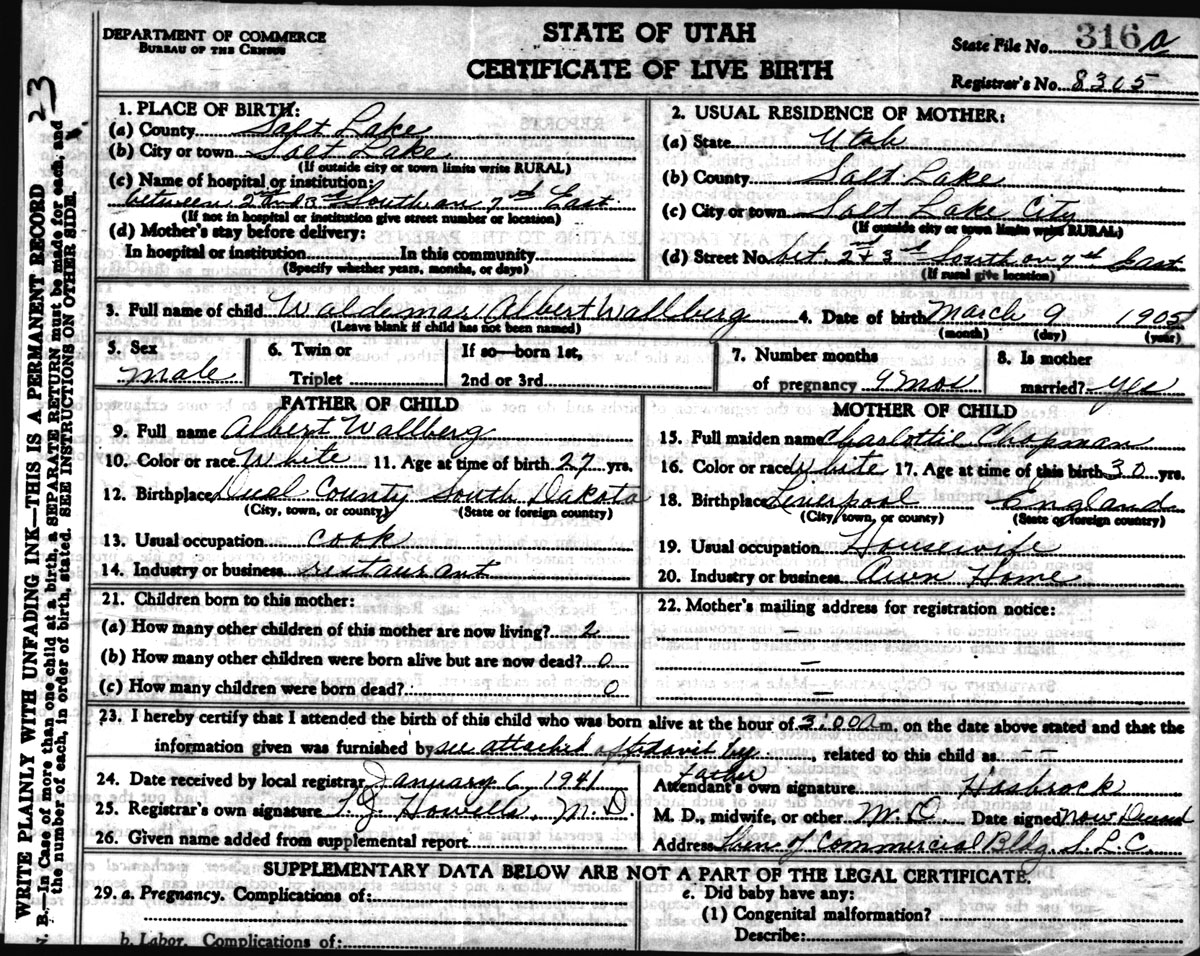 DEPARTMENT OF COMMERCE
BUREAU OF THE CENSUS
STATE OF UTAH
CERTIFICATE OF LIVE BIRTH
State File No. 316 a
Registrar's No. 8305
23
WRITE PLAINLY WITH UNFADING INK—THIS IS A PERMANENT RECORD
N. B.—In case of more than one child at a birth, a SEPARATE RETURN must be made for each, and
the number of each, in order of birth, stated. SEE INSTRUCTIONS ON OTHER SIDE.
1. PLACE OF BIRTH:
(a) County Salt Lake
(b) City or town Salt Lake
(If outside city or town limits write RURAL)
(c) Name of hospital or institution:
between 2nd & 3rd South on 7th East
(If not in hospital or institution give street number or location)
(d) Mother's stay before delivery:
In hospital or institution In this community
(Specify whether years, months, or days)
2. USUAL RESIDENCE OF MOTHER:
(a) State Utah
(b) County Salt Lake
(c) City or town Salt Lake City
(If outside city or town limits write RURAL)
(d) Street No. bet. 2nd & 3rd South on 7th East
(If rural give location)
3. Full name of child Waldemar Albert Wallberg 4. Date of birth March 9 1905
(Leave blank if child has not been named) (month) (day) (year)
5. Sex
Male
6. Twin or
Triplet
If so—born 1st,
2nd or 3rd
7. Number months
of pregnancy 9 mos
8. Is mother
married? yes
FATHER OF CHILD
9. Full name Albert Wallberg
10. Color or race White 11. Age at time of birth 27 yrs.
12. Birthplace Dual County South Dakota
(City, town, or county) (State or foreign country)
13. Usual occupation cook
14. Industry or business restaurant
MOTHER OF CHILD
15. Full maiden name Charlottie Chapman
16. Color or race White 17. Age at time of this birth 30 yrs.
18. Birthplace Liverpool England
(City, town, or county) (State or foreign country)
19. Usual occupation Housewife
20. Industry or business Own Home
21. Children born to this mother:
(a) How many other children of this mother are now living? 2
(b) How many other children were born alive but are now dead? 0
(c) How many children were born dead? 0
22. Mother's mailing address for registration notice:
—
—
—
23. I hereby certify that I attended the birth of this child who was born alive at the hour of 3:00 a m. on the date above stated and that the
information given was furnished by see attached affidavit by Father, related to this child as --
24. Date received by local registrar January 6, 1941
25. Registrar's own signature T. J. Howells, M. D.
26. Given name added from supplemental report
Attendant's own signature Hasbrock
M. D., midwife, or other M. D. Date signed Now Dead
Address Then of Commercial Bldg. S. L. C.
SUPPLEMENTARY DATA BELOW ARE NOT A PART OF THE LEGAL CERTIFICATE.
29. a. Pregnancy. Complications of:
b. Labor. Complications of:
Did baby have any:
(1) Congenital malformation?
Describe: